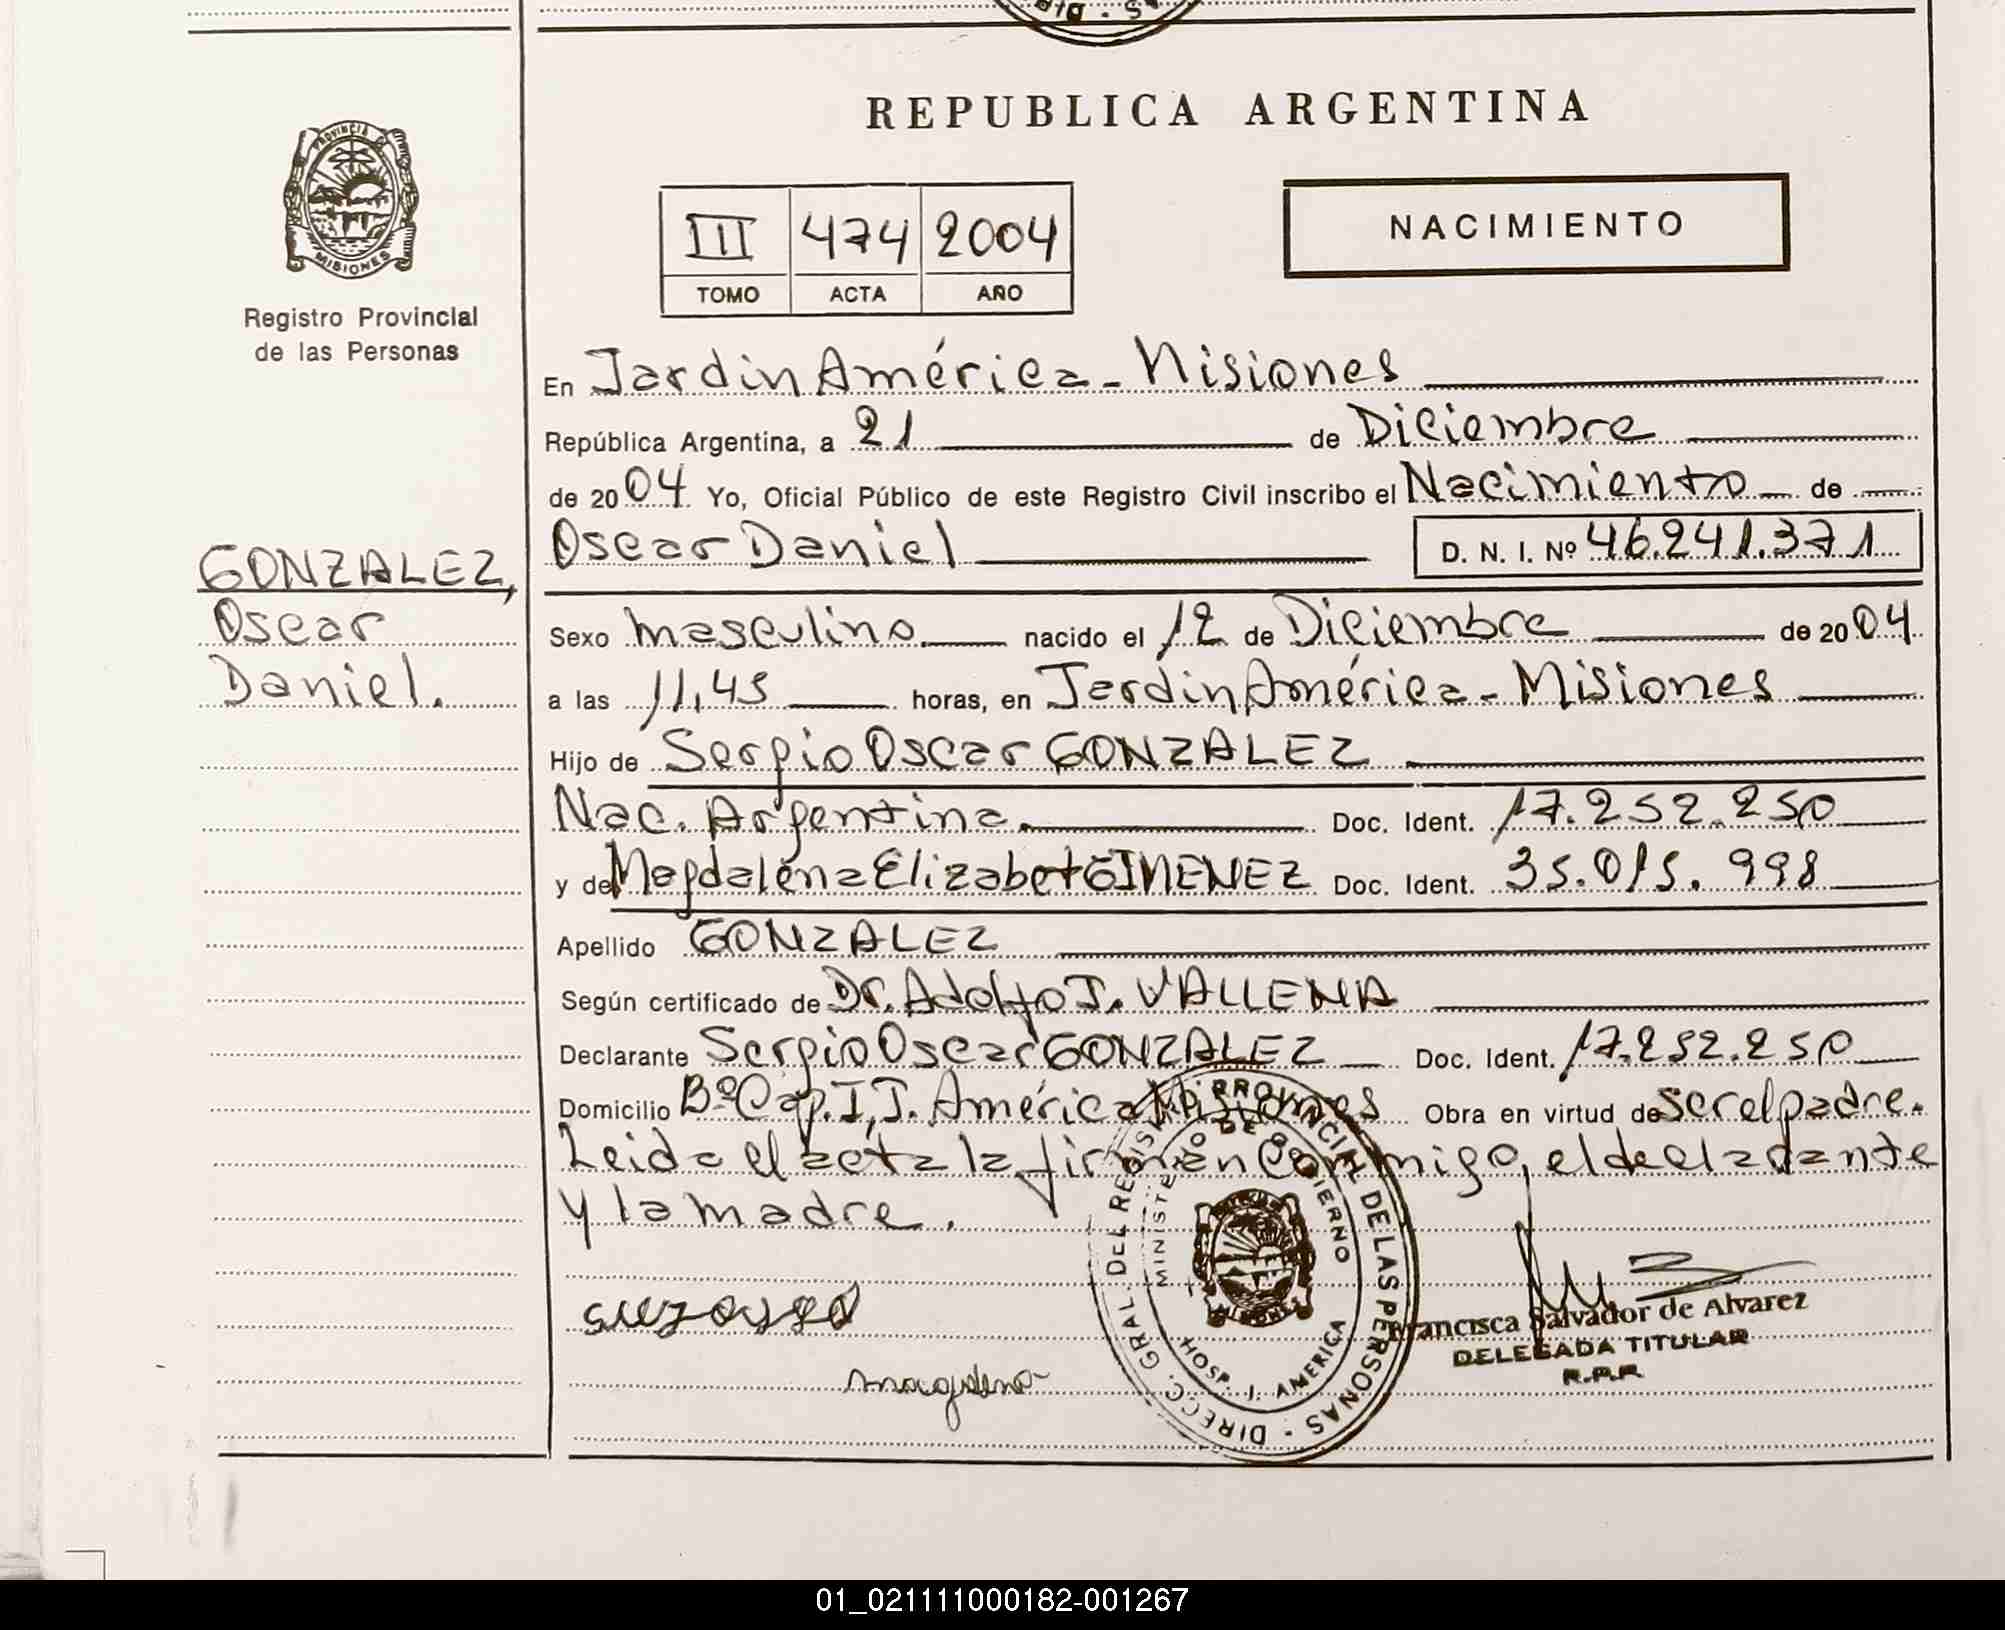 REPUBLICA ARGENTINA
PROVINCIA DE
MISIONES
Registro Provincial
de las Personas
III 474 2004
TOMO ACTA AÑO
NACIMIENTO
En Jardin América - Misiones
República Argentina, a 21 de Diciembre
de 2004 Yo, Oficial Público de este Registro Civil inscribo el Nacimiento de
Oscar Daniel D. N. I. Nº 46.241.371
GONZALEZ,
Oscar
Daniel.
Sexo masculino nacido el 12 de Diciembre de 2004
a las 11,45 horas, en Jardin América - Misiones
Hijo de Sergio Oscar GONZALEZ
Nac. Argentina. Doc. Ident. 17.252.250
y de Magdalena Elizabet GIMENEZ Doc. Ident. 35.015.998
Apellido GONZALEZ
Según certificado de Dr. Adolfo J. VALLENA
Declarante Sergio Oscar GONZALEZ Doc. Ident. 17.252.250
Domicilio Bº Cap. I, J. América Misiones Obra en virtud de ser el padre.
Leida el acta la firman conmigo, el declarante
y la madre.
DIRECC. GRAL. DEL REGISTRO PROVINCIAL DE LAS PERSONAS -
MINISTERIO DE GOBIERNO
HOSP. J. AMERICA
MISIONES
Francisca Salvador de Alvarez
DELEGADA TITULAR
R.P.P.
magdena
01_021111000182-001267